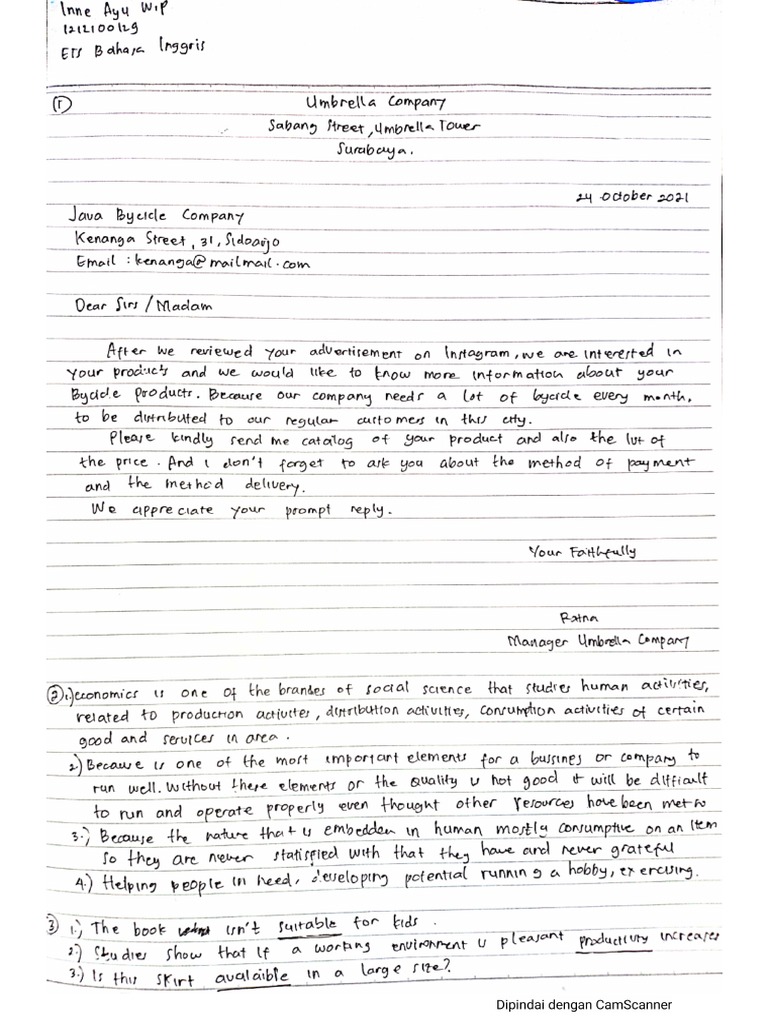 Inne Ayu W.P
1212100129
ETS Bahasa Inggris
① Umbrella Company
Sabang Street, Umbrella Tower
Surabaya.
24 October 2021
Java Bycicle Company
Kenanga Street, 31, Sidoarjo
Email : kenanga@mailmail.com
Dear Sirs / Madam
After we reviewed your advertisement on Instagram, we are interested in
your products and we would like to know more information about your
Bycicle products. Because our company needs a lot of bycicle every month,
to be distributed to our regular customers in this city.
Please kindly send me catalog of your product and also the list of
the price. And I don't forget to ask you about the method of payment
and the method delivery.
We appreciate your prompt reply.
Your Faithfully
Ratna
Manager Umbrella Company
② 1.) economics is one of the brandes of social science that studies human activities,
related to production activites, distribution activities, consumption activities of certain
good and services in area.
2) Because is one of the most important elements for a bussines or company to
run well. Without these elements or the quality is not good it will be difficult
to run and operate properly even thought other resources have been met
3.) Because the nature that is embedden in human mostly consumptive on an item
so they are never statisfied with that they have and never grateful
4.) Helping people in need, developing potential running a hobby, exercising.
③ 1.) The book isn't suitable for kids.
2) Studies show that if a working environment is pleasant productivity increases
3.) Is this skirt avalaible in a large size?
Dipindai dengan CamScanner